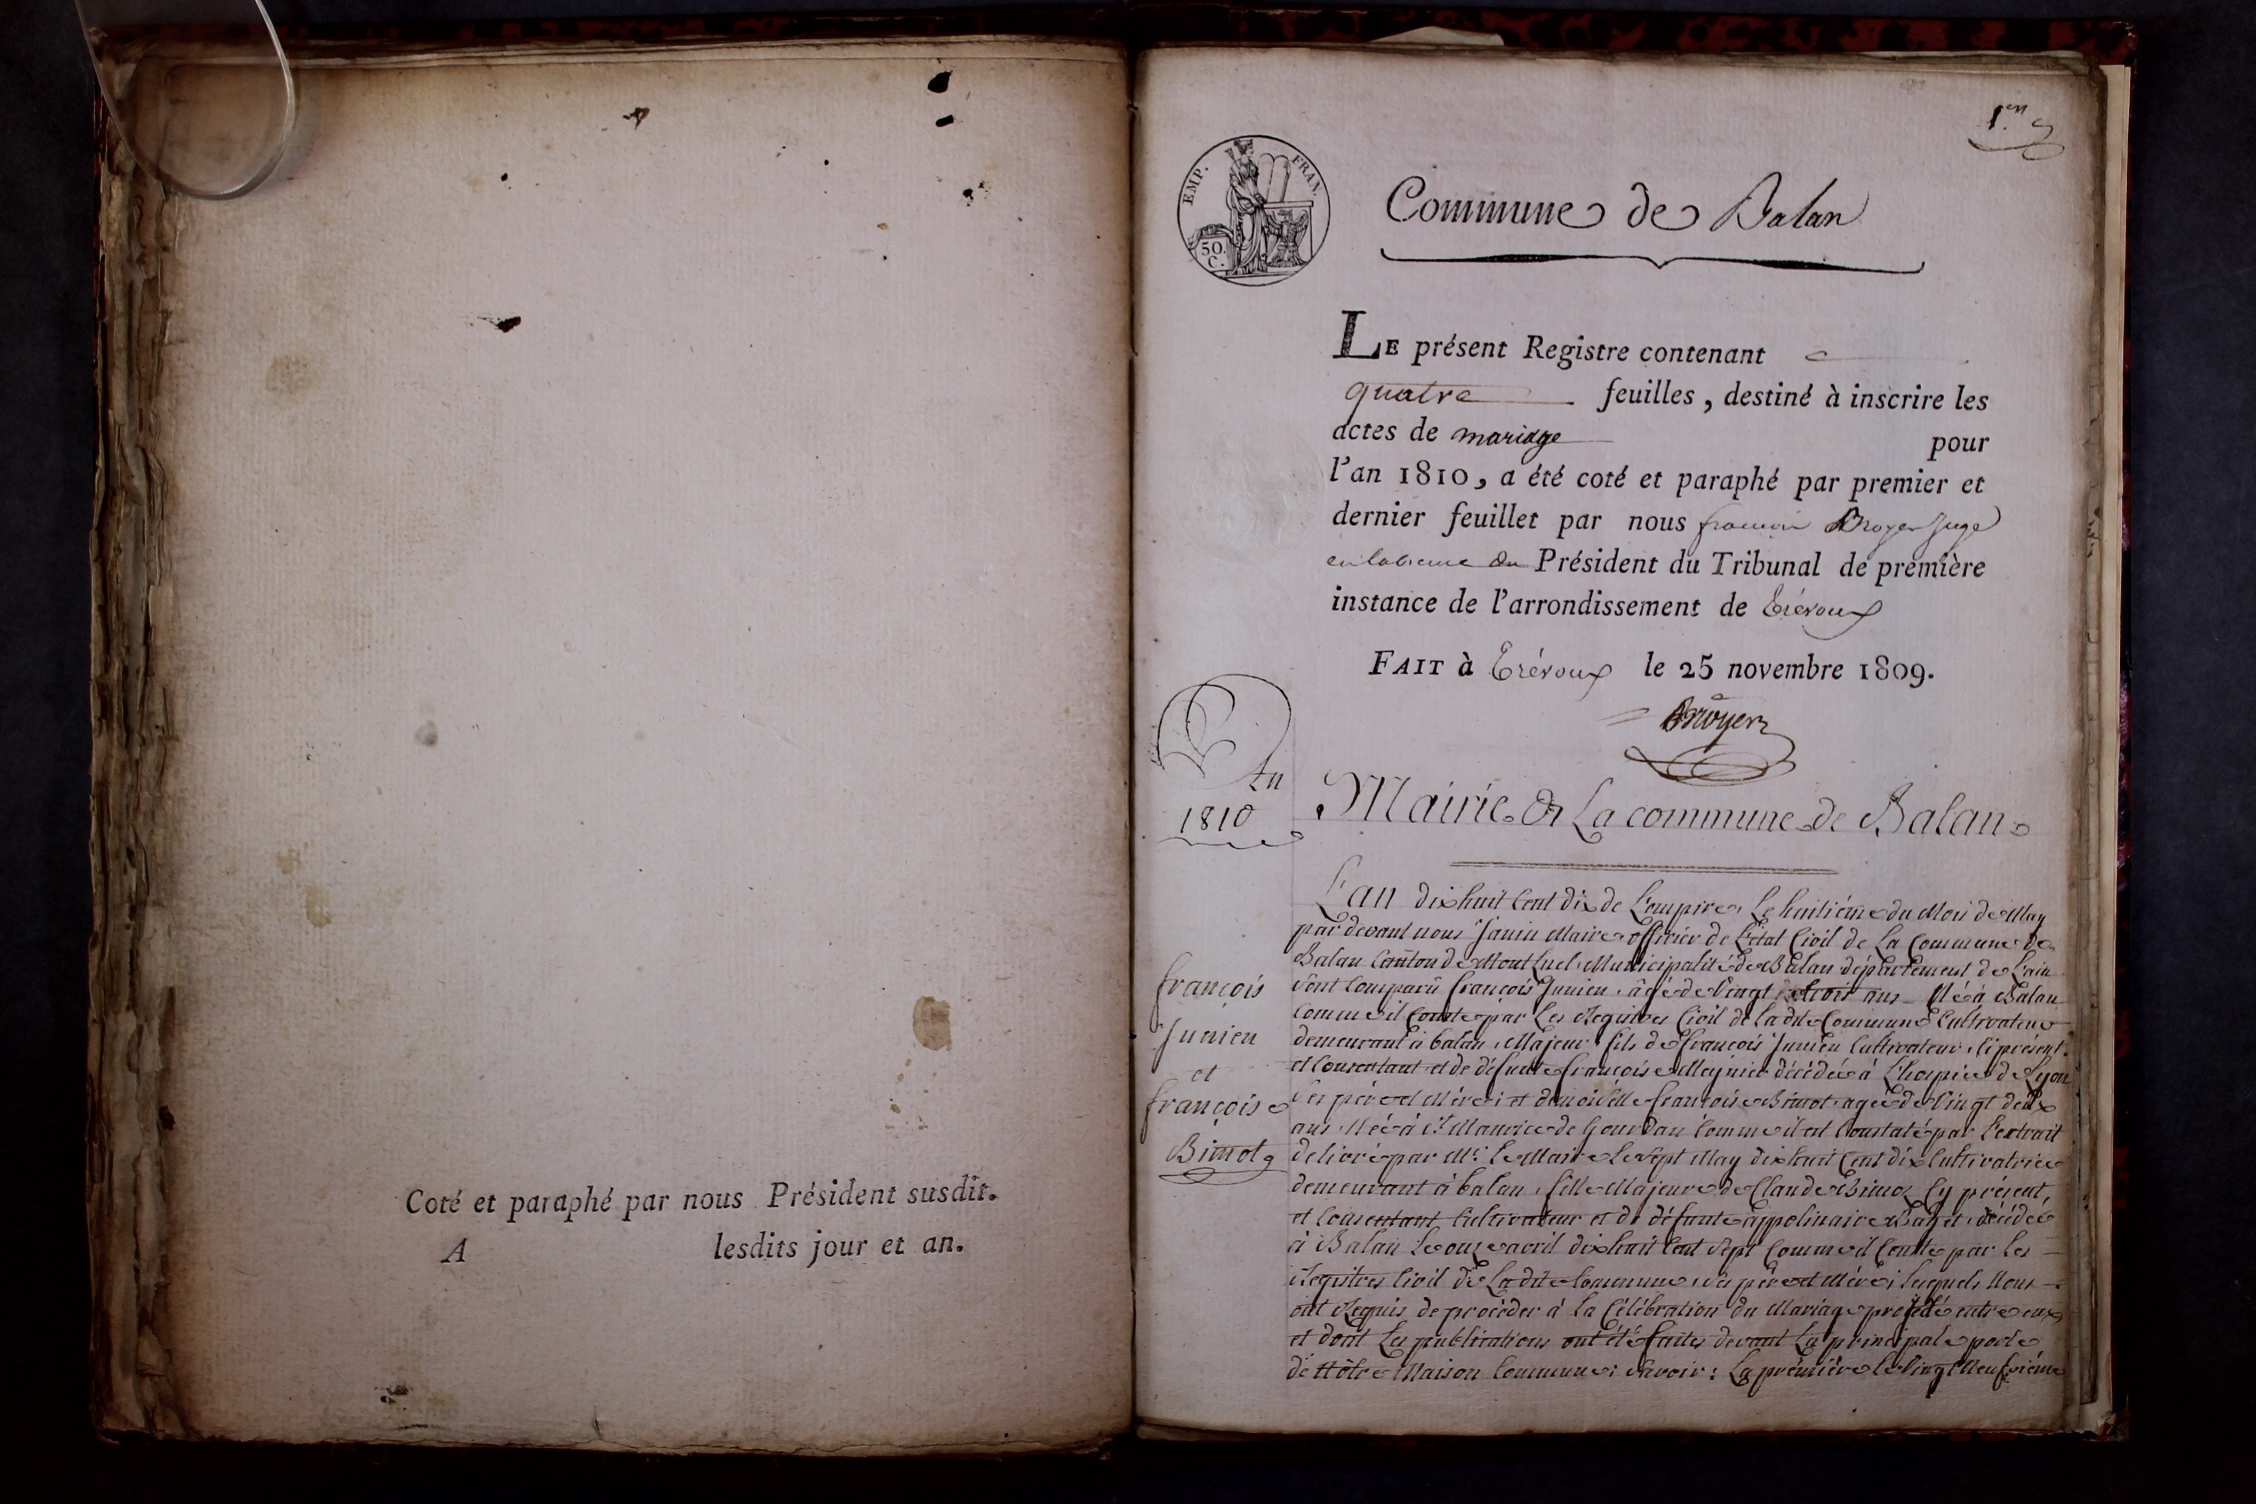 Coté et paraphé par nous Président susdit.
A lesdits jour et an.
1.er
EMP. FRAN.
50.
C.
Commune de Balan
LE présent Registre contenant
quatre feuilles, destiné à inscrire les
actes de mariage pour
l'an 1810, a été coté et paraphé par premier et
dernier feuillet par nous françois Broyer Juge
en labsence du Président du Tribunal de première
instance de l'arrondissement de Trévoux
FAIT à Trévoux le 25 novembre 1809.
Broyer
An
1810
Mairie de La commune de Balan
françois
Junien
et
françoise
Bimot
L'an dix huit Cent dix de L'empire, Le huitième du Mois de May
par devant nous Janin Maire officier de L'état Civil de La Commune de
Balan Canton de Mont Luel, Municipalité de Balan département de L'ain
Sont Comparu françois Junien, âgé de Vingt trois ans Né à Balan
Comme il Conste par Les Registres Civil de La dite Commune Cultivateur
demeurant à balan, Majeur fils de françois Junien Cultivateur, Ci présent
et Consentant et de défunte françoise Meynier décédée à L'hospice de Lyon
Ses père et Mère; et demoiselle françoise Bimot, agée de Vingt deux
ans, Née à St Maurice de Gourdan Comme il est Constaté par L'extrait
delivré par Mr. Le Maire Le Sept May dix huit Cent dix Cultivatrice
demeurant à balan, fille Majeure de Claude Bimot Cy présent,
et Consentant Cultivateur et de défunte appolinaire décédée
à Balan Le onze avril dix huit Cent Sept Comme il Conste par Les
Registres Civil de La dite Commune, Ses père et Mère; Lesquels Nous
ont Requis de procéder à La Célébration du Mariage projetté entre eux
et dont Les publications ont été faites devant La principale porte
de Nôtre Maison Commune; Savoir: La première Le Vingt Neufvième